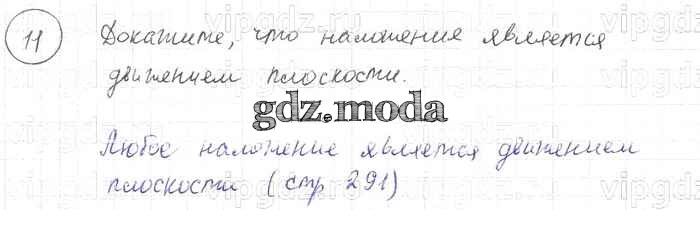 11 Докажите, что наложение является
движением плоскости.
gdz.moda
Любое наложение является движением
плоскости (стр 291)